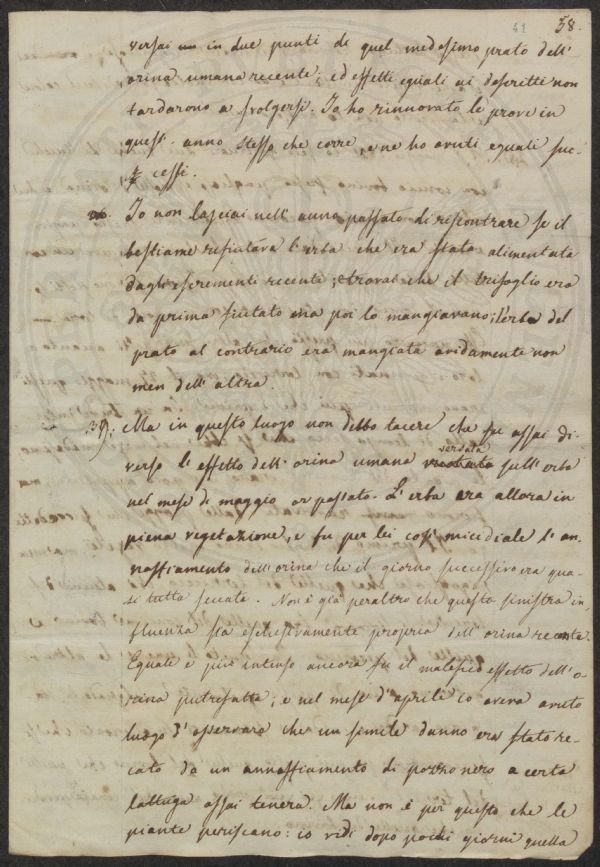 51 38.
versai in due punti di quel medesimo prato dell'
orina umana recente; ed effetti eguali ai descritti non
tardarono a svolgersi. Io ho rinnovato le prove in
quest' anno stesso che corre, e ne ho avuti eguali suc-
cessi.
Io non lasciai nell' anno passato di riscontrare se il
bestiame rifiutava l'erba che era stata alimentata
dagli escrementi recenti; e trovai che il trifoglio era
da prima fiutato ma poi lo mangiavano; l'erba del
prato al contrario era mangiata avidamente non
men dell' altra.
39. Ma in questo luogo non debbo tacere che fu assai di-
verso l'effetto dell' orina umana versata sull' erba
nel mese di maggio or passato. L'erba era allora in
piena vegetazione, e fu per lei così micidiale l'an-
naffiamento dell'orina che il giorno successivo era qua-
si tutta seccata. Non è già peraltro che questa sinistra in-
fluenza sia esclusivamente propria dell' orina recente.
Eguale e più intenso ancora fu il malefico effetto dell'o-
rina putrefatta; e nel mese d'aprile io aveva avuto
luogo d'osservare che un simile danno era stato re-
cato da un annaffiamento di pozzo nero a certa
lattuga assai tenera. Ma non è per questo che le
piante periscano: io vidi dopo pochi giorni quella